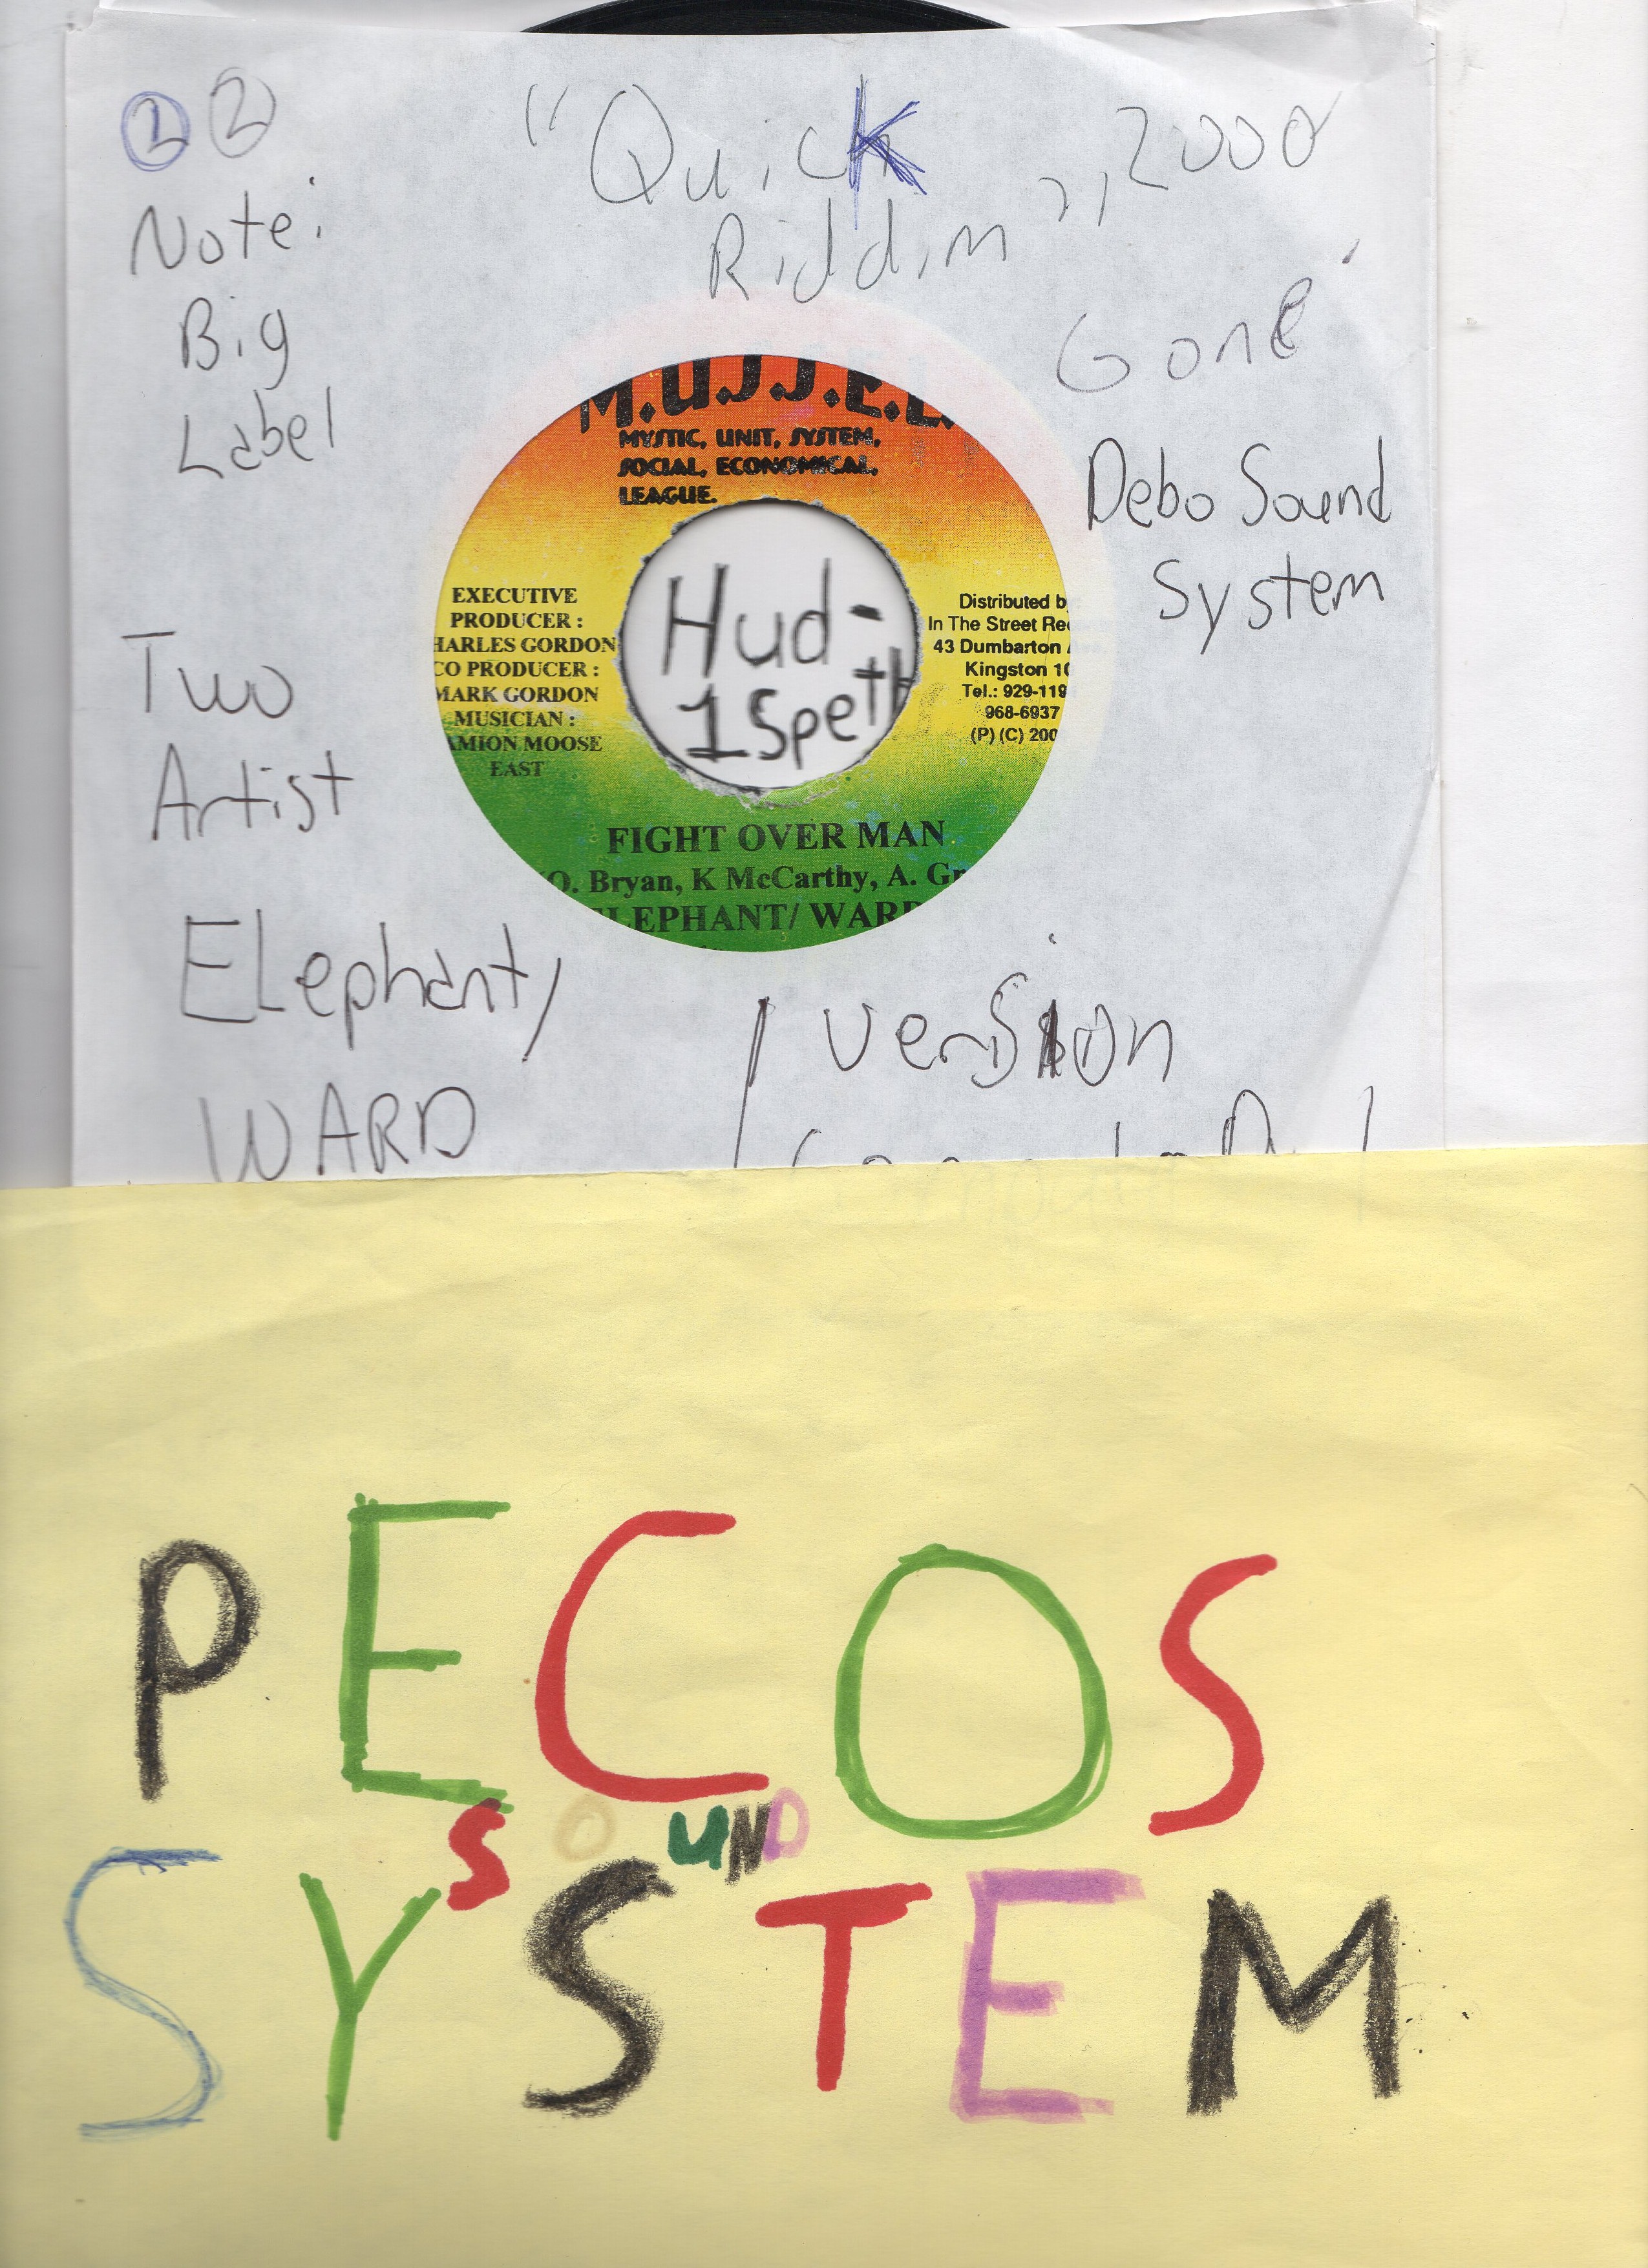 2 2
"Quick
Riddim", 2000
Note:
Big
Label
Gone
Debo Sound
System
M.U.S.S.E.L.
MYSTIC, UNIT, SYSTEM,
SOCIAL, ECONOMICAL,
LEAGUE.
EXECUTIVE
PRODUCER :
HARLES GORDON
CO PRODUCER :
MARK GORDON
MUSICIAN :
AMION MOOSE
EAST
Hud-
1Speth
Distributed b
In The Street Rec
43 Dumbarton A
Kingston 10
Tel.: 929-119
968-6937
(P) (C) 200
FIGHT OVER MAN
O. Bryan, K McCarthy, A. Gr
LEPHANT/ WARD
Two
Artist
ELephant/
WARD
Version
PECOS
SOUND
SYSTEM